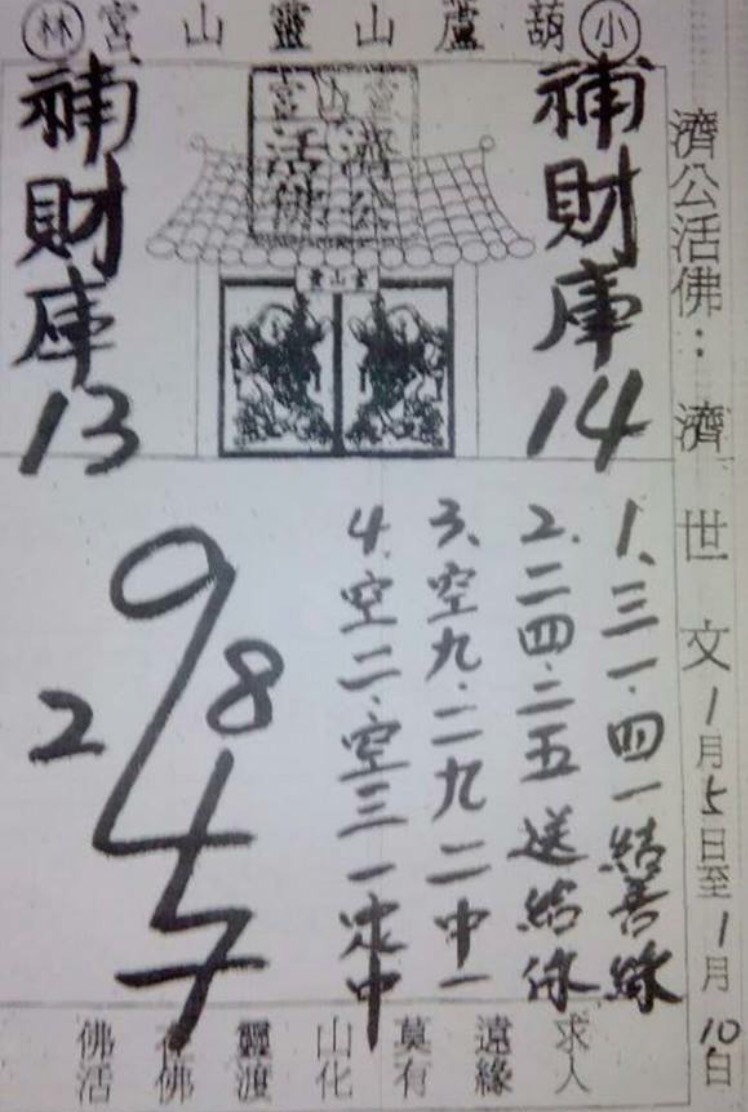 小葫蘆山靈山宮林
濟公活佛：濟世文1月5日至1月10日
補財庫14
靈山宮
濟公
活佛
補財庫13
1、三一.四一結善緣
2.二四.二五送結緣
3、空九.二九二中一
4.空二.空三一定中
9
2 8
4
7
佛在靈山莫遠求
活佛渡化有緣人